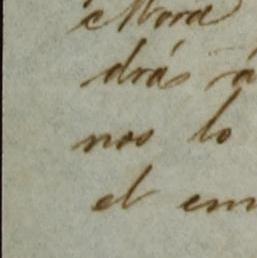 Mora
drás á
nos lo
el em